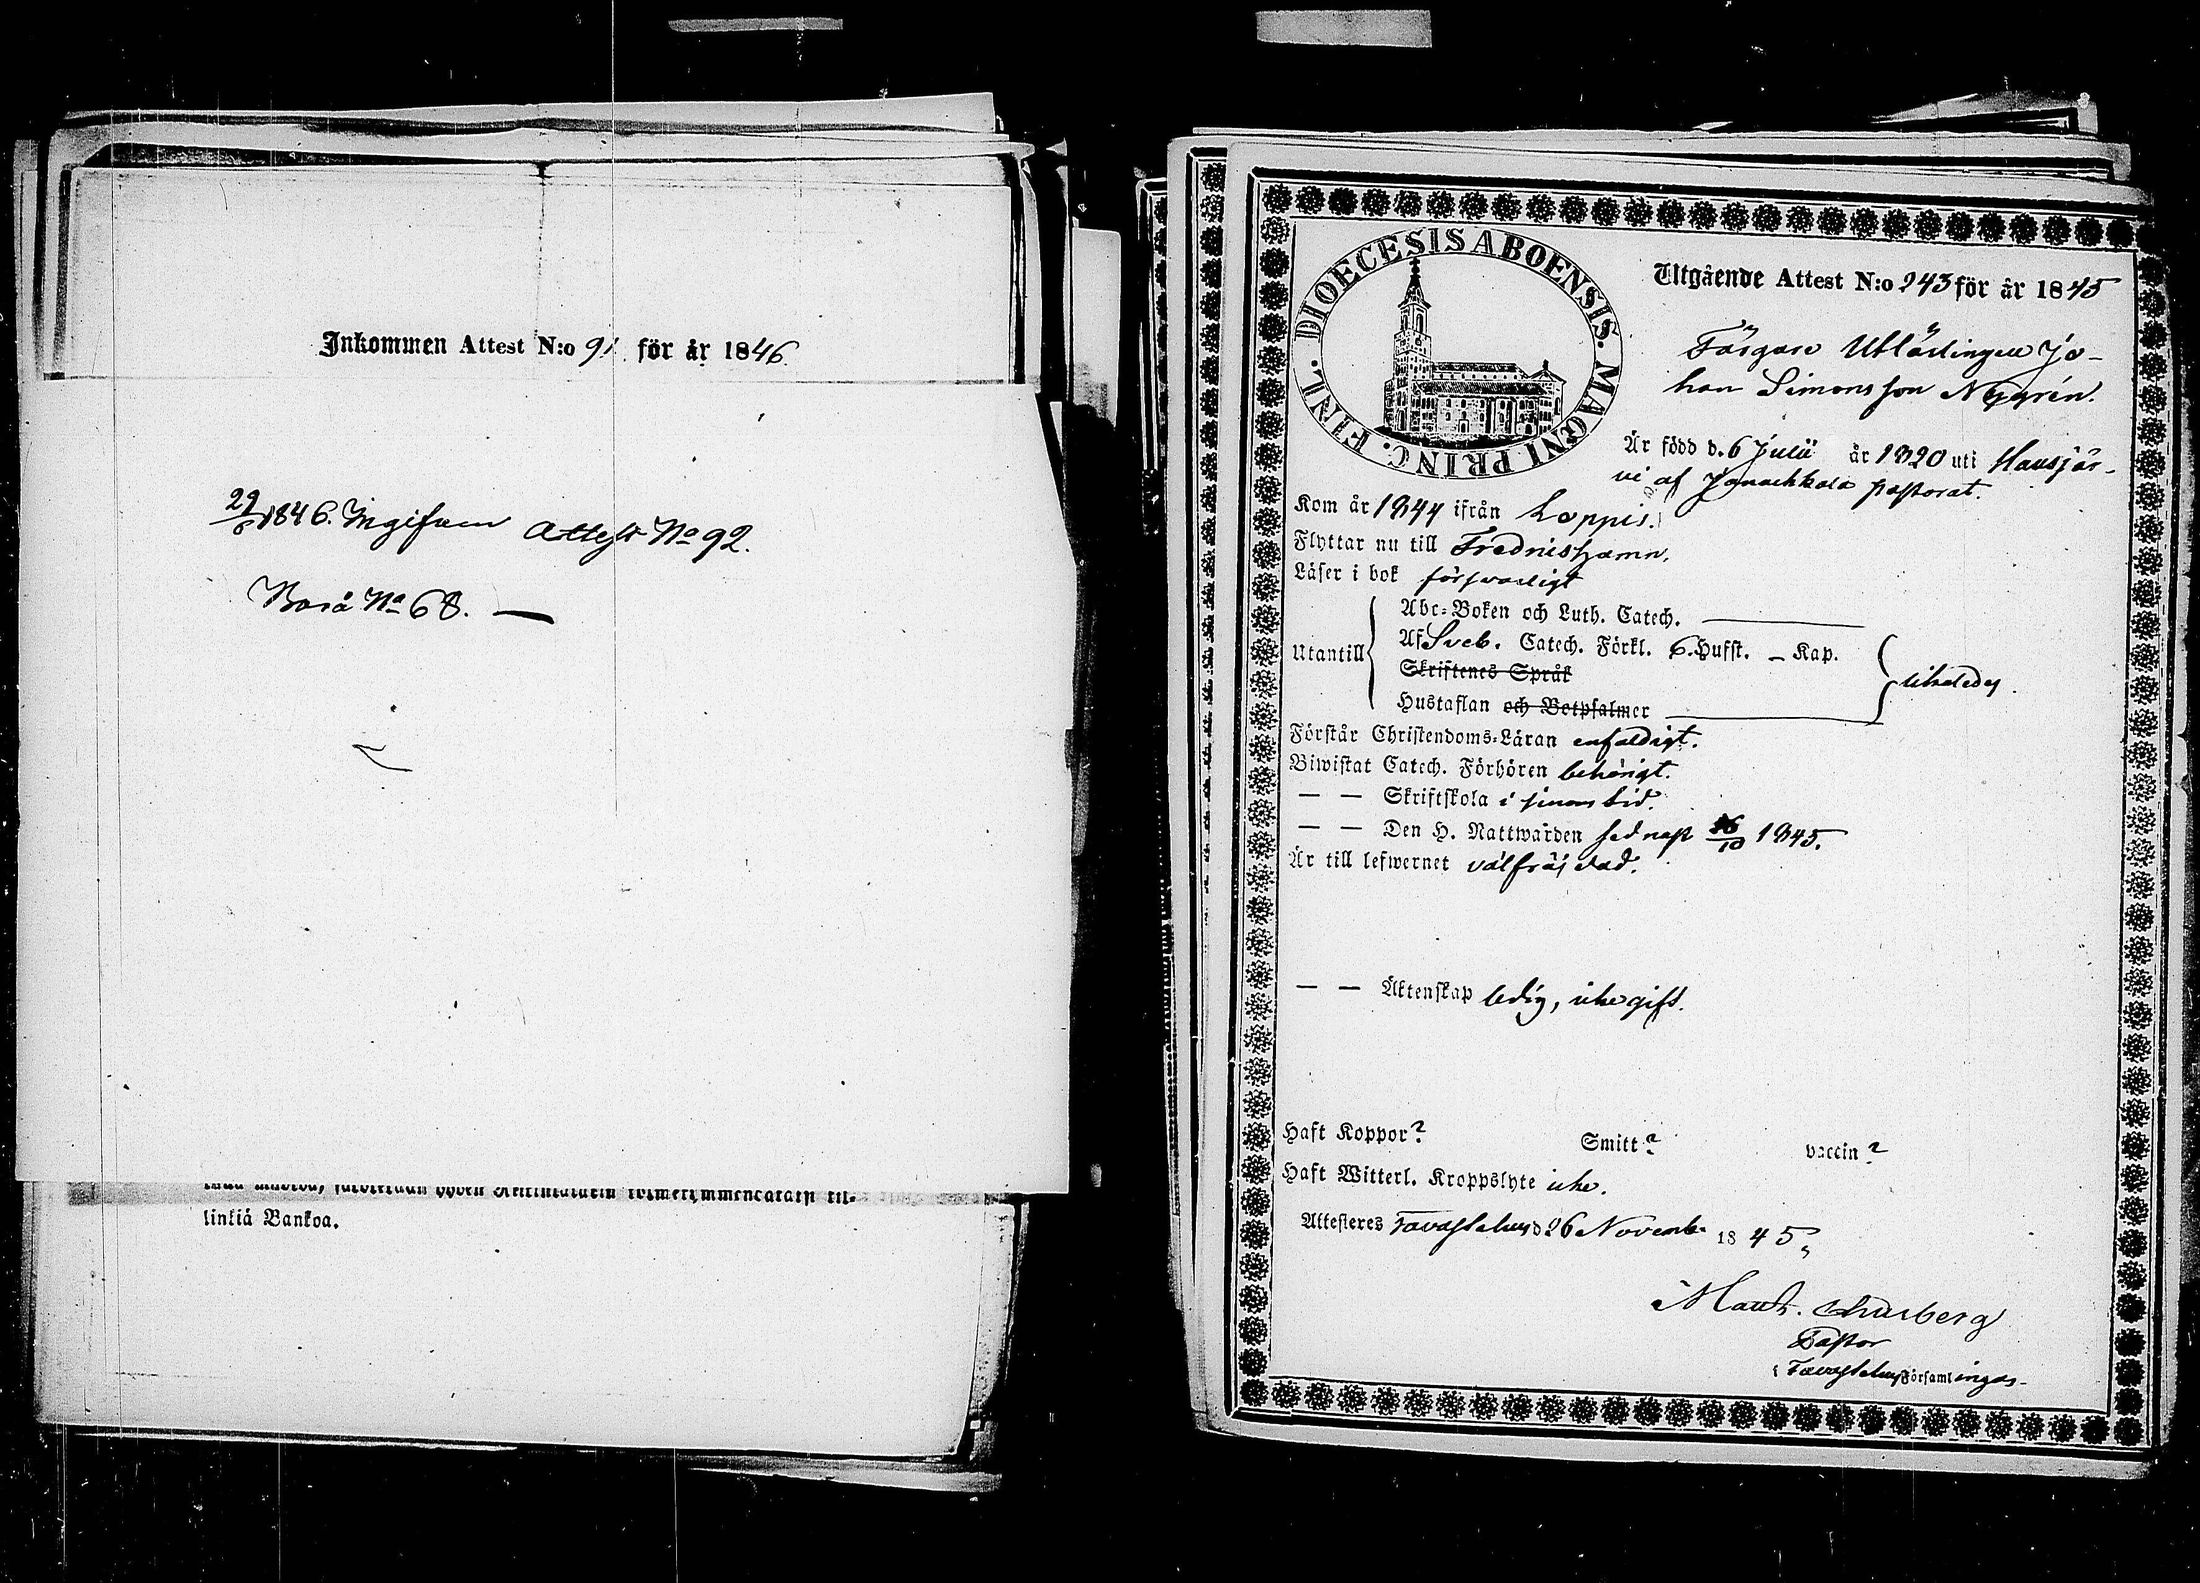 Inkommen Attest N:o 91 för år 1846.
1846. Ingifven Attest No 92.
No 68. —
linkiä Vankoa.
DIOECESIS ABOENSIS. MAGNI PRINC. FINL.
Utgående Attest N:o 243 för år 1845
Färgare Utlärlingen Jo-
han Simonsson Nygrén.
Är född d. 6 Julii år 1820 uti Hausjär-
vi af Janackkala pastorat.
Kom år 1844 ifrån Loppis.
Flyttar nu till Fredricshamn.
Läser i bok försvarligt
Utantill
Abc-Boken och Luth. Catech.
Af Sveb. Catech. Förkl. 6. Hufst. – Kap.
Skriftenes Språk
Hustaflan och Botpsalmer
likaledes.
Förstår Christendoms-Läran enfaldigt.
Biwistat Catech. Förhören behörigt.
— — Skriftskola i sinom tid.
— — Den H. Nattwarden sednast 16/10 1845.
Är till lefwernet välfräjdad.
— — Äktenskap ledig, icke gift.
Haft Koppor? Smitt? vaccin?
Haft Witterl. Kroppslyte icke.
Attesteras Tavastehus d 26 Novemb. 1845.
Maur. Churberg
Pastor
i Tavastehus Församlingar.